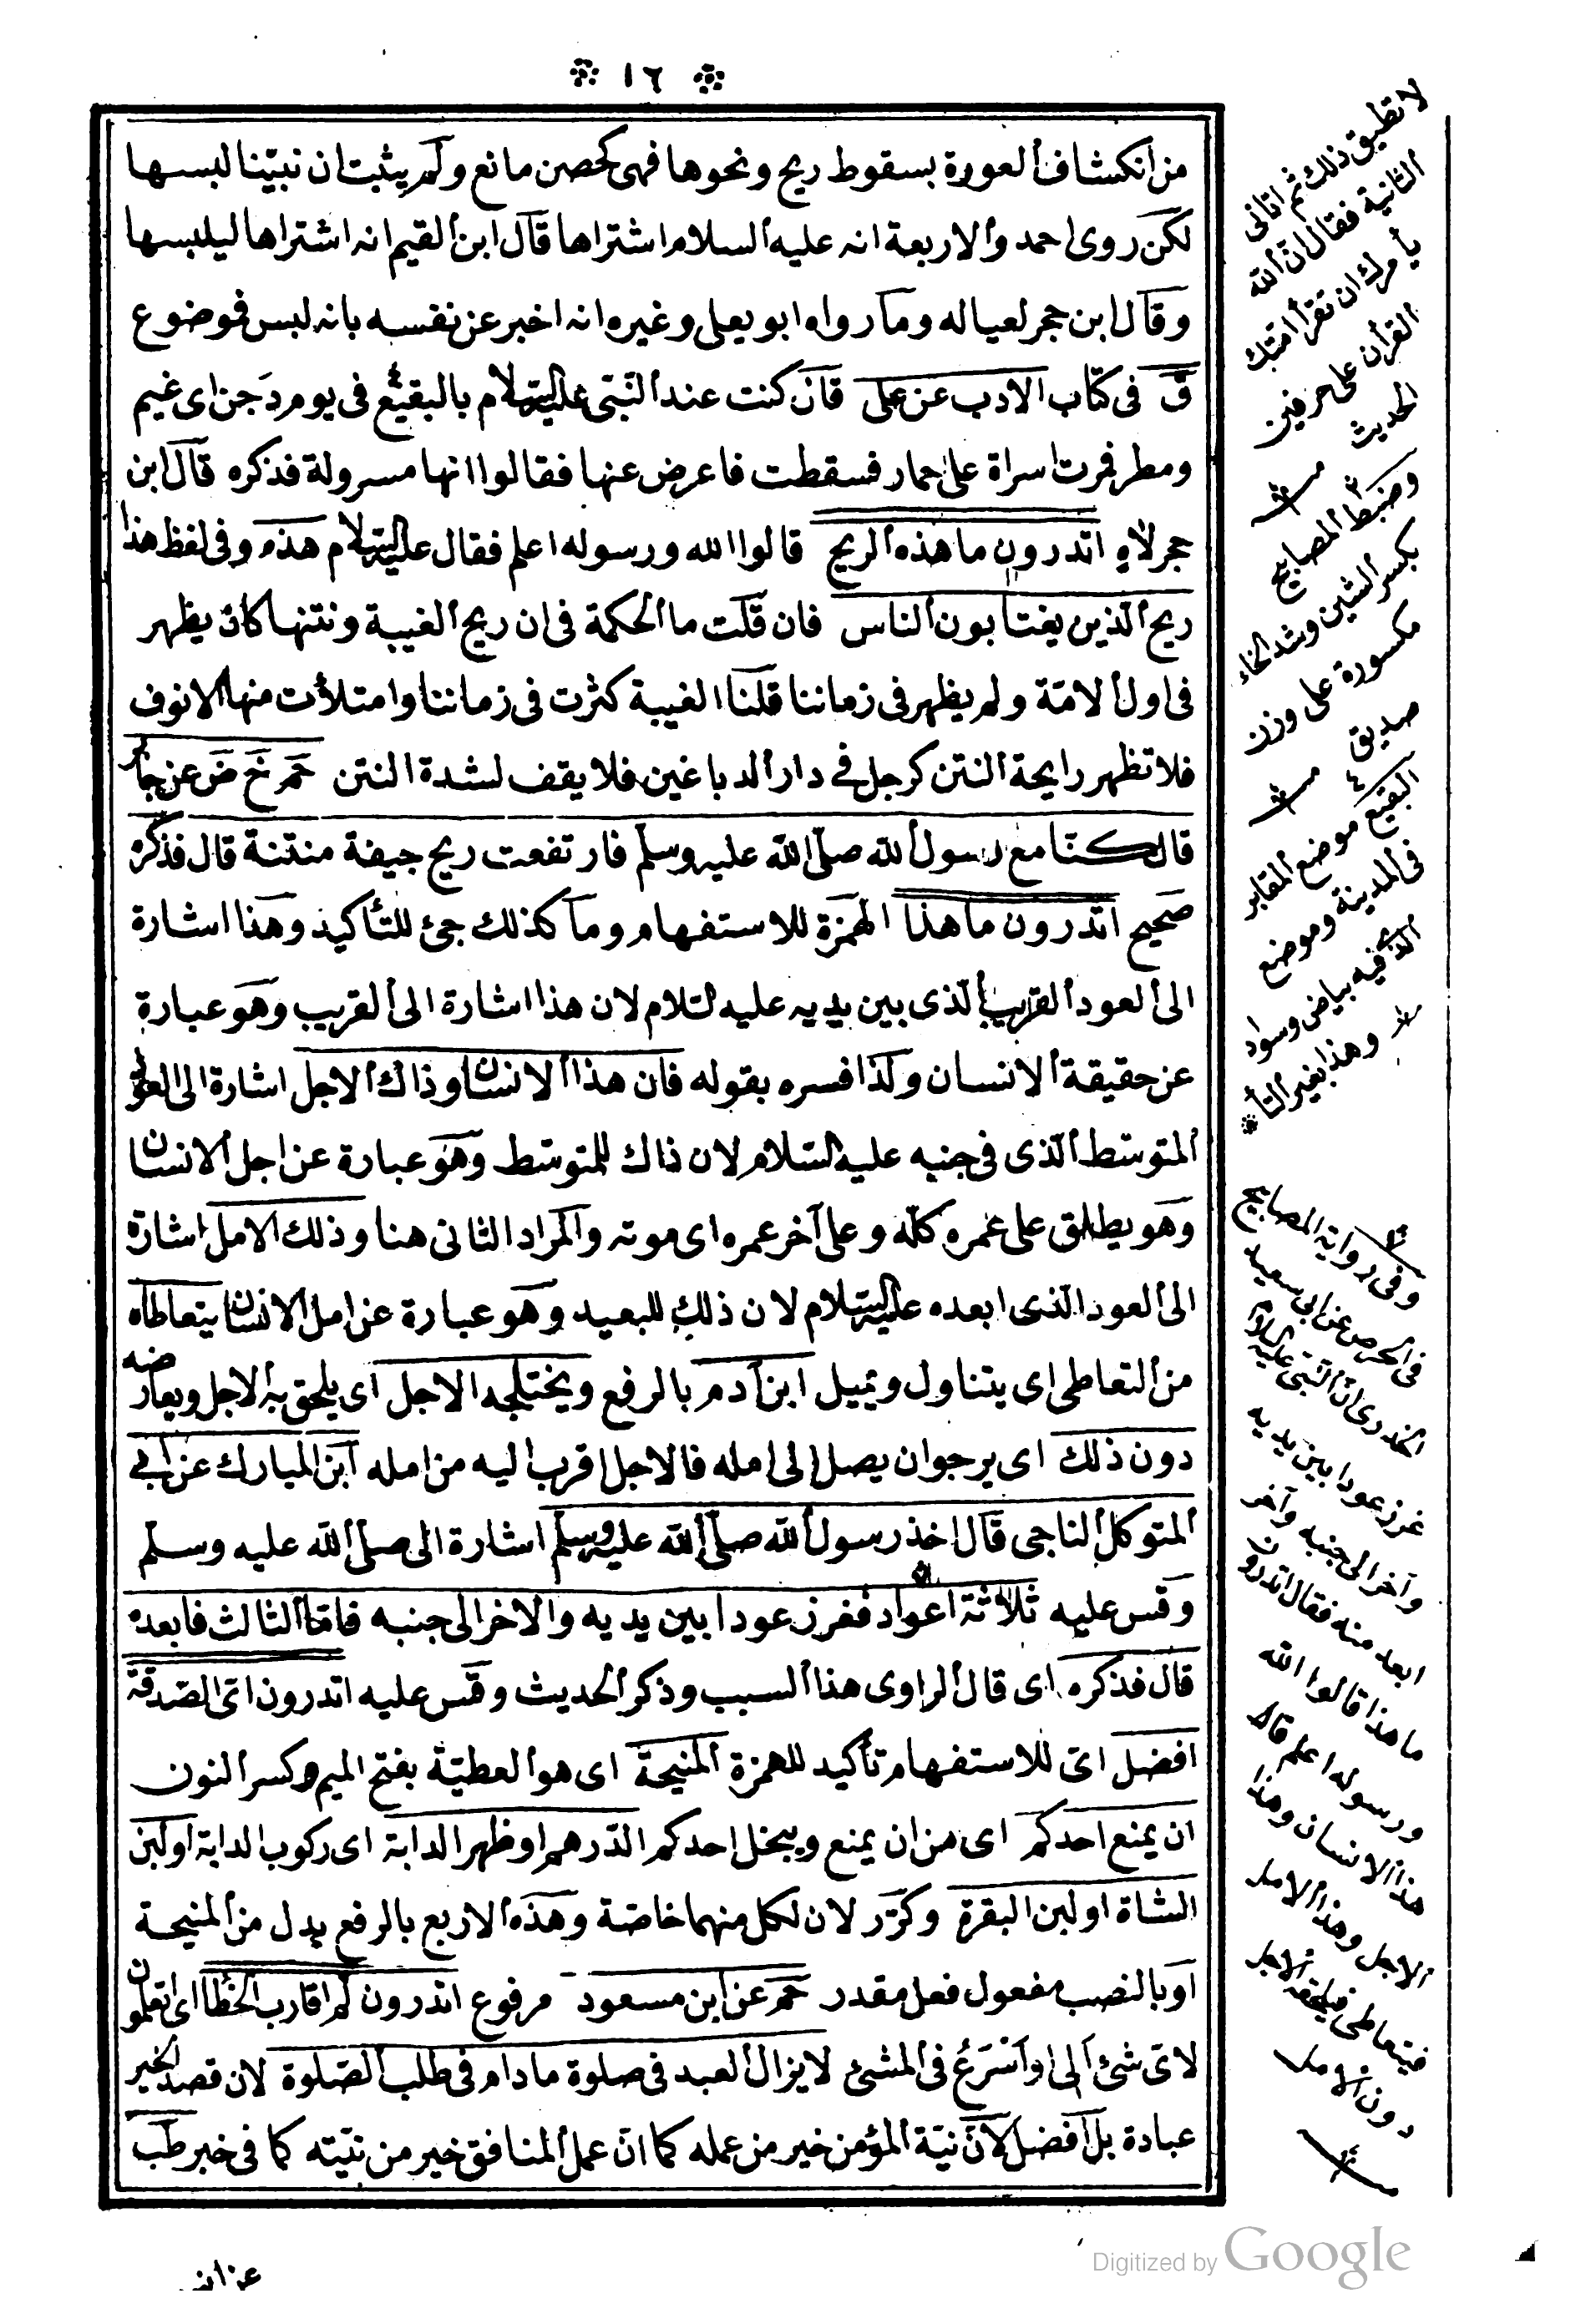 ١٦
من انكشاف العورة بسقوط ريح ونحوها فهى كحصن مانع ولم يثبت ان نبيّنا لبسها
لكن روى احمد والاربعة انه عليه السلام اشتراها قال ابن القيم انه اشتراها ليلبسها
وقال ابن حجر لعياله وما رواه ابو يعلى وغيره انه اخبر عن نفسه بانه لبس فموضوع
ق فى كتاب الادب عن على قان كنت عند النبى عليه السلام بالبقيع فى يوم دجن اى غيم
ومطر فمرت اسراة على حمار فسقطت فاعرض عنها فقالوا انها مسرولة فذكره قال ابن
حجر لاه اتدرون ما هذه الريح قالوا الله ورسوله اعلم فقال عليه السلام هذه وفى لفظ هذا
ريح الذين يغتابون الناس فان قلت ما الحكمة فى ان ريح الغيبة ونتنها كان يظهر
فى اول الامّة ولم يظهر فى زماننا قلنا الغيبة كثرت فى زماننا وامتلأت منها الانوف
فلا تظهر رايحة النتن كرجل فى دار الدباغين فلا يقف لشدة النتن حم خ ض عن جابر
قال كنا مع رسول الله صلى الله عليه وسلم فارتفعت ريح جيفة منتنة قال فذكره
صحيح اتدرون ما هذا الهمزة للاستفهام وما كذلك جئ للتأكيد وهذا اشارة
الى العود القريب الذى بين يديه عليه السلام لان هذا اشارة الى القريب وهو عبارة
عن حقيقة الانسان ولذا فسره بقوله فان هذا الانسان وذاك الاجل اشارة الى العود
المتوسط الذى فى جنبه عليه السلام لان ذاك للمتوسط وهو عبارة عن اجل الانسان
وهو يطلق على عمره كله وعلى آخر عمره اى موته والمراد الثانى هنا وذلك الامل اشارة
الى العود الذى ابعده عليه السلام لان ذلك للبعيد وهو عبارة عن امل الانسان يتعاطاه
من التعاطى اى يتناول ويميل ابن آدم بالرفع ويختلجه الاجل اى يلحق به الاجل ويعارضه
دون ذلك اى يرجو ان يصل الى امله فالاجل اقرب اليه من امله ابن المبارك عن ابى
المتوكل الناجى قال اخذ رسول الله صلى الله عليه وسلم اشارة الى صلى الله عليه وسلم
وقس عليه ثلاثة اعواد ففرز عودا بين يديه والاخر الى جنبه فاما الثالث فابعده
قال فذكره اى قال الراوى هذا السبب وذكر الحديث وقس عليه اتدرون اىّ الصدقة
افضل اىّ للاستفهام تأكيد للهمزة المنيحة اى هو العطيّة بفتح الميم وكسر النون
ان يمنع احدكم اى من ان يمنع ويبخل احدكم الدرهم او ظهر الدابة اى ركوب الدابة او لبن
الشاة او لبن البقرة وكرّر لان لكل منهما خاصّة وهذه الاربع بالرفع بدل من المنيحة
او بالنصب مفعول فعل مقدر حم عن ابن مسعود مرفوع اتدرون لم اقارب الخطا اى اتعلمون
لاىّ شئ آلى او أسرع فى المشئ لا يزال العبد فى صلوة ما دام فى طلب الصلوة لان قصد الخير
عبادة بل افضل لانّ نيّة المؤمن خير من عمله كما انّ عمل المنافق خير من نيّته كما فى خبر طب
لا تطيق ذلك ثم اتانى
الثانية فقال ان الله
يأمرك ان تقرأ امتك
القرأن على حرفين
الحديث
وضبط المصابيح
بكسر الشين وشد الخاء
مكسورة على وزن
صديق
البقيع موضع المقابر
فى المدينة وموضع
الذى فيه بياض وسواد
وهذا بغير التأ
وفى رواية المصابيح
فى الحرص عن ابى سعيد
الخدرى ان النبى عليه السلام
غرز عودا بين يديه
وآخر الى جنبه وآخر
ابعد منه فقال اتدرون
ما هذا قالوا الله
ورسوله اعلم قال
هذا الانسان وهذا
الاجل وهذا الامل
فيتعاطى فيلحقه الاجل
دون الامل
Digitized by Google